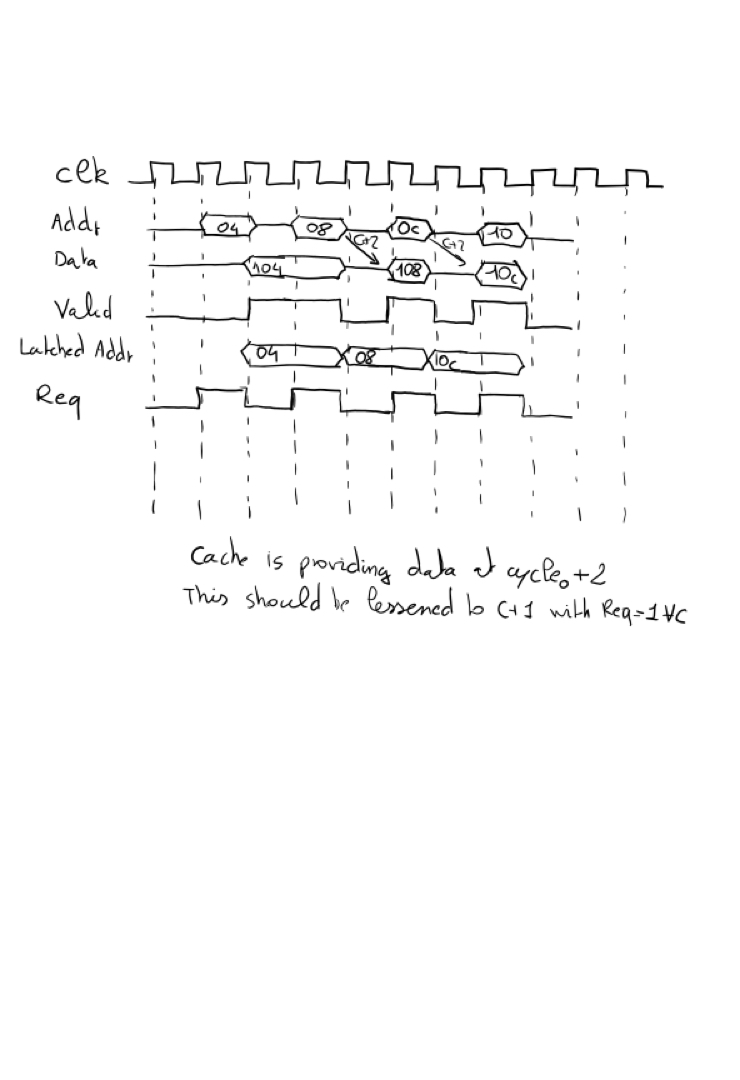 clk
Addr 04 08 0c 10
C+2 C+2
Data 104 108 10c
Valid
Latched Addr 04 08 10c
Req
Cache is providing data at cycle0+2
This should be lessened to C+1 with Req=1 ∀C